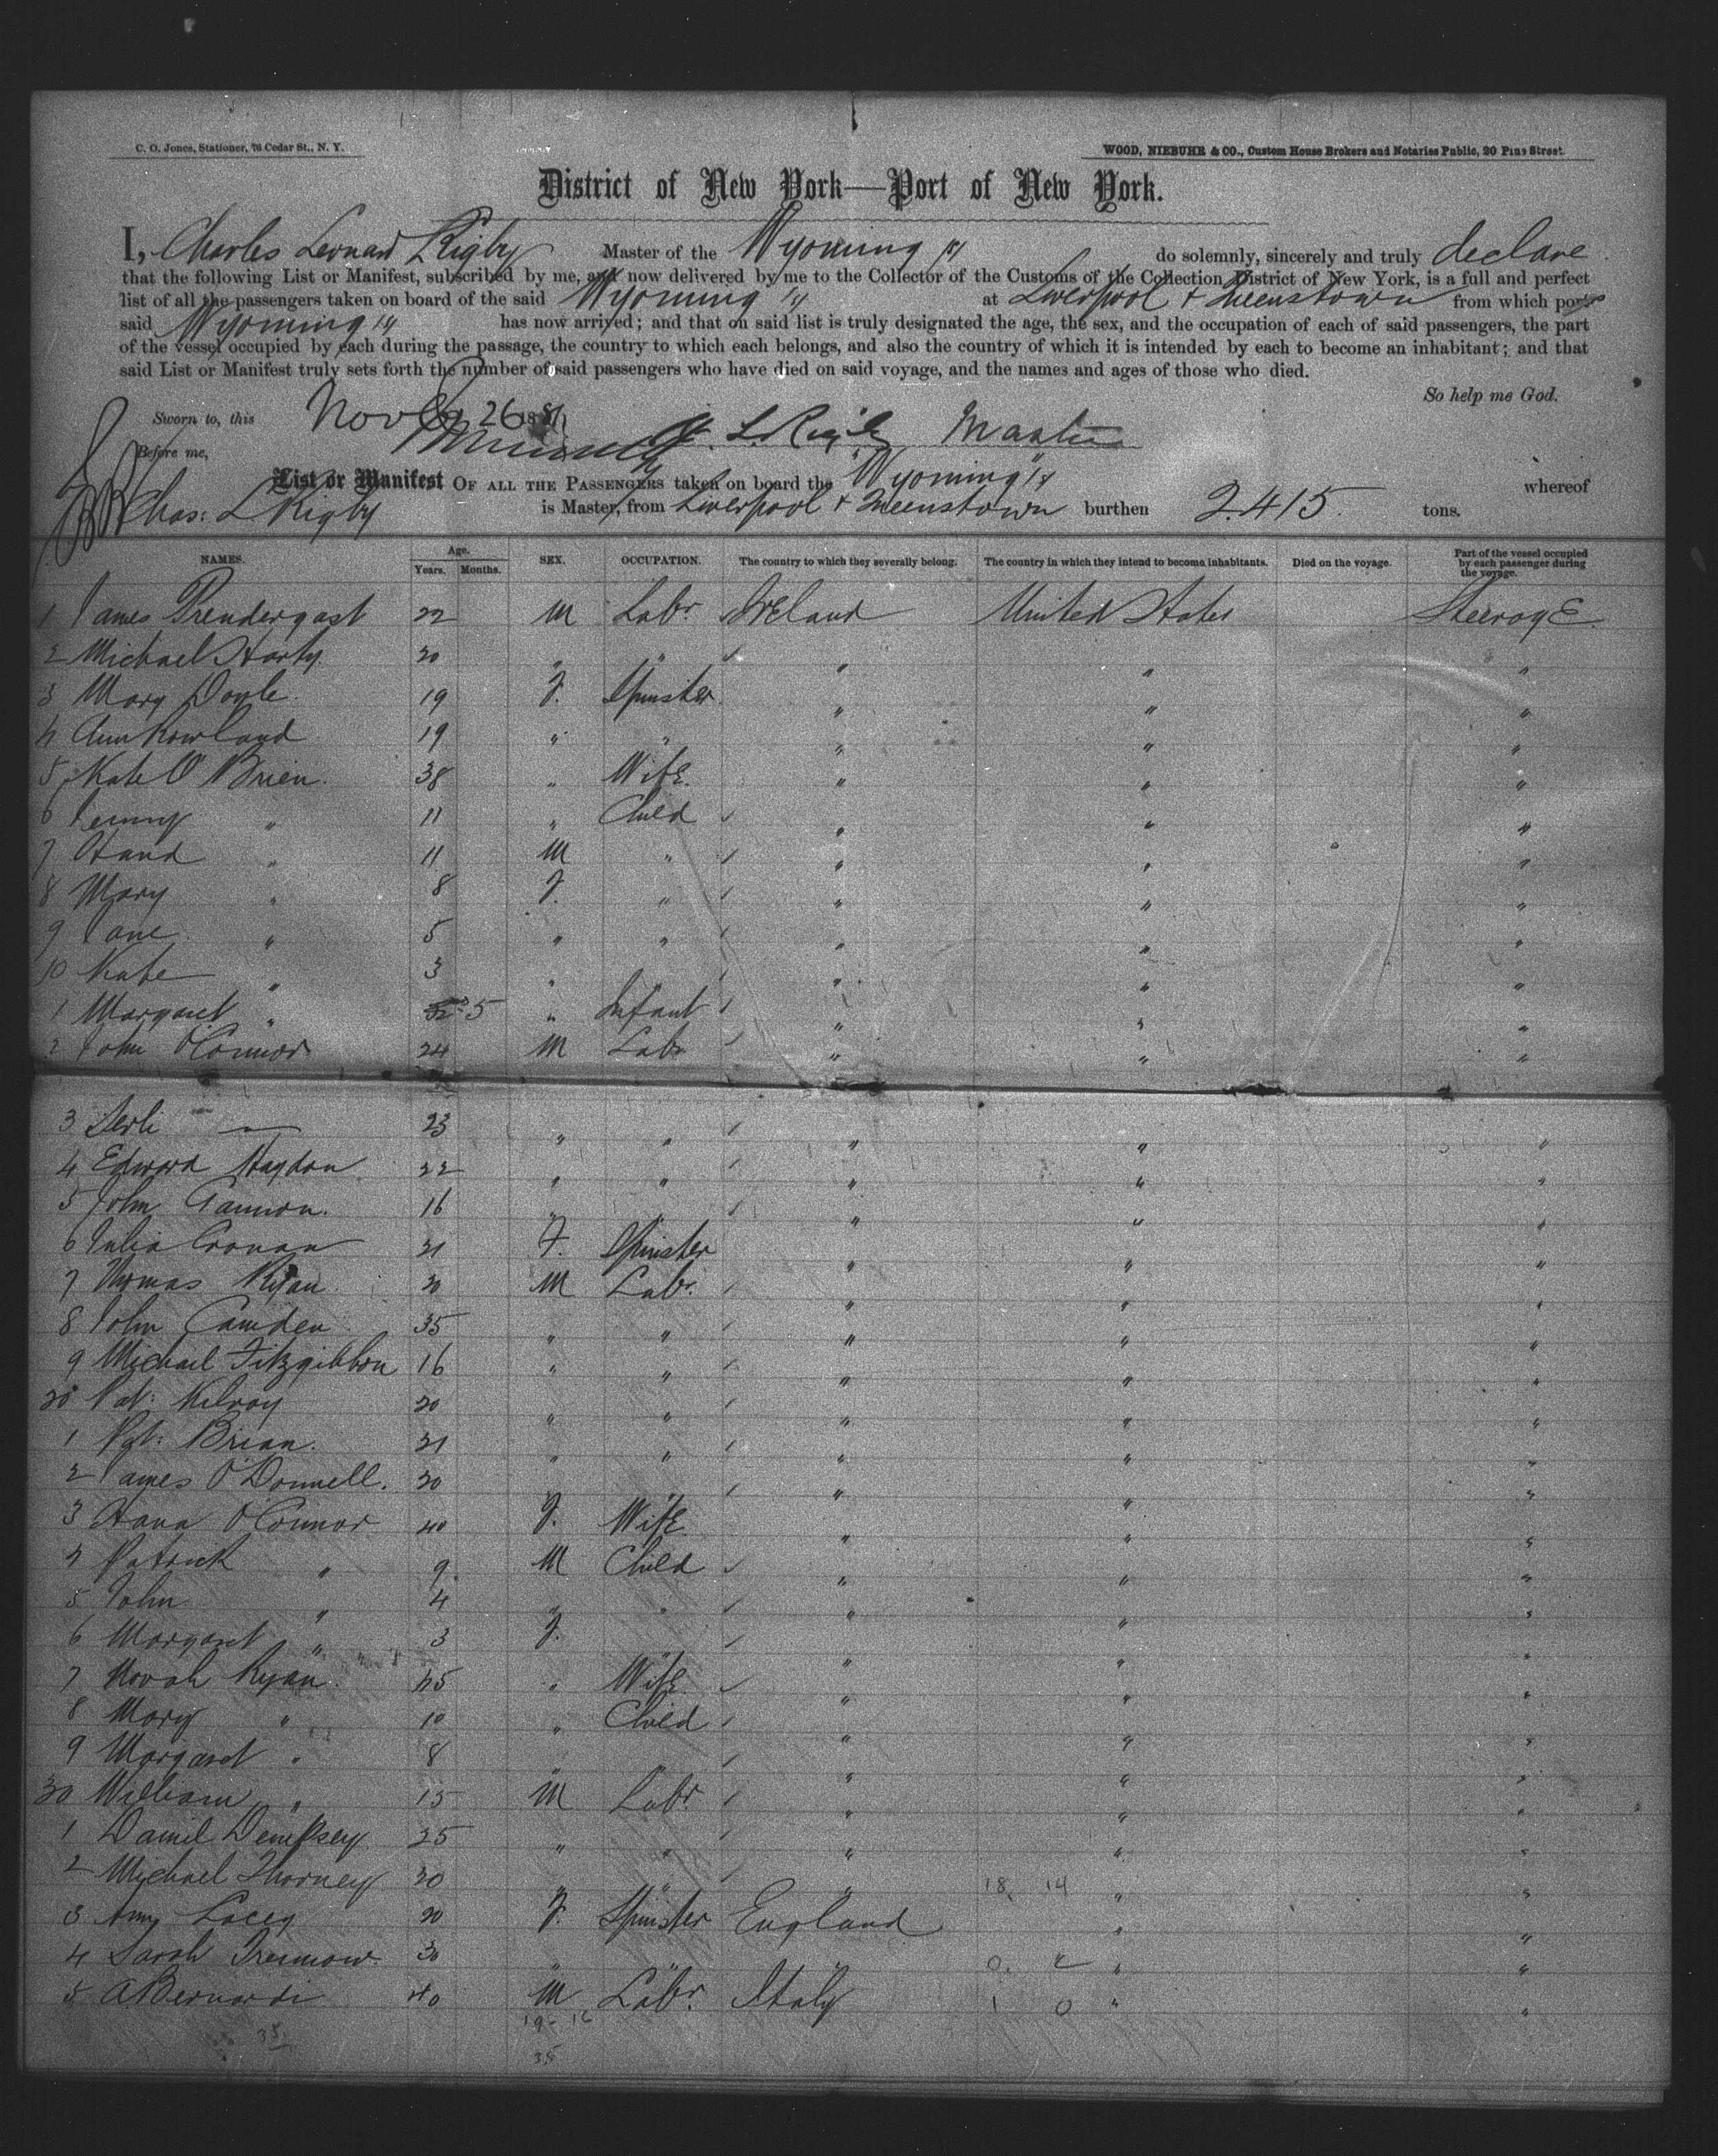 C. O. Jones, Stationer, 76 Cedar St., N. Y.
WOOD, NIEBUHR & CO., Custom House Brokers and Notaries Public, 20 Pine Street.
District of New York—Port of New York.
I, Charles Leonard Rigby Master of the Wyoming do solemnly, sincerely and truly declare
that the following List or Manifest, subscribed by me, and now delivered by me to the Collector of the Customs of the Collection District of New York, is a full and perfect
list of all the passengers taken on board of the said Wyoming at Liverpool + Queenstown from which port
said Wyoming has now arrived; and that on said list is truly designated the age, the sex, and the occupation of each of said passengers, the part
of the vessel occupied by each during the passage, the country to which each belongs, and also the country of which it is intended by each to become an inhabitant; and that
said List or Manifest truly sets forth the number of said passengers who have died on said voyage, and the names and ages of those who died.
So help me God.
Sworn to, this Novbr 26 188
L. Rigby Master
Before me,
List or Manifest OF ALL THE PASSENGERS taken on board the "Wyoming" whereof
Chas: L Rigby is Master, from Liverpool + Queenstown burthen 2.415 tons.
NAMES. Age. Years. Months. SEX. OCCUPATION. The country to which they severally belong. The country in which they intend to become inhabitants. Died on the voyage. Part of the vessel occupied by each passenger during the voyage.
1 James Prendergast 22 M Labr. Ireland United States Steerage
2 Michael Harty 20 " " " " "
3 Mary Doyle 19 F. Spinster " " "
4 Ann Rowland 19 " " " " "
5 Kate O'Brien 38 " Wife " " "
6 Jenny " 11 " Child " " "
7 Hand " 11 M " " " "
8 Mary " 8 F. " " " "
9 Jane " 5 " " " " "
10 Kate " 3 " " " "
1 Margaret " 5 " Infant " " "
2 John O'Connor 24 M Labr " " "
3 — 23 " " " " "
4 Edward Haydon 22 " " " " "
5 John Gannon. 16 " " " " "
6 Julia Cronan 21 F. Spinster " " "
7 Thomas Ryan 20 M Labr. " " "
8 John Camden 35 " " " " "
9 Michael Fitzgibbon 16 " " " " "
20 Pat: Kilroy 20 " " " " "
1 Pat: Brian. 21 " " " " "
2 James O'Donnell. 20 " " " " "
3 Hana O'Connor 40 F. Wife " " "
4 Patrick " 9 M Child " " "
5 John " 4 " " " " "
6 Margaret " 3 F. " " "
7 Norah Ryan 45 " Wife " " "
8 Mary " 10 " Child " " "
9 Margaret " 8 " " " " "
30 William " 15 M Labr. " " "
1 Daniel Dempsey 25 " " " " "
2 Michael 20 " " " 18 14 " "
3 Amy Lacey 20 F. Spinster England " "
4 Sarah 30 " " " 0 2 " "
5 A Bernardi 40 M Labr. Italy 1 0 " "
35
19-16
35